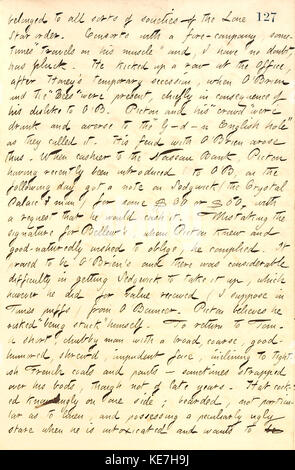 127
belonged to all sorts of societies of the Lone
Star order. Consorts with a fire-company, some-
times "travels on his muscle" and, I have no doubt,
has pluck. He kicked up a row at the Office,
after Haney's temporary secession, when O'Brien
and the were present, chiefly in consequence of
his dislike to O'B. Picton and his "crowd" were
drunk and averse to the "G-d-n English hole"
as they called it. This feud with O'Brien arose
thus. When cashier to the Nassau Bank, Picton
having recently been introduced to O'B, on the
following day got a note on Sedgwick (the Crystal
Palace man) for some $30 or $60, with
a request that he would cash it. Mistaking the
signature for Bellew's, whom Picton knew and
good-naturedly wished to oblige, he complied. It
proved to be O'Brien's and there was considerable
difficulty in getting Sedgwick to take it up, which
however he did for value received, I suppose in
Times puffs, from O'B. Picton believes he
risked being stuck himself. To return to Tom.
A short, chubby man with a broad, coarse, good-
humored, shrewd, impudent face, inclining to tight-
ish French coats and pants - sometimes strapped
over his boots, though not of late years. Hat cock-
ed knowingly on one side; bearded, not particu-
lar as to linen, and possessing a peculiarly ugly
stare when he is intoxicated and wants to
alamy
Image ID: KE7H9J
www.alamy.com